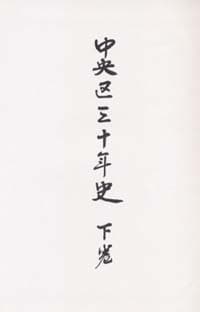 中央区三十年史 下巻